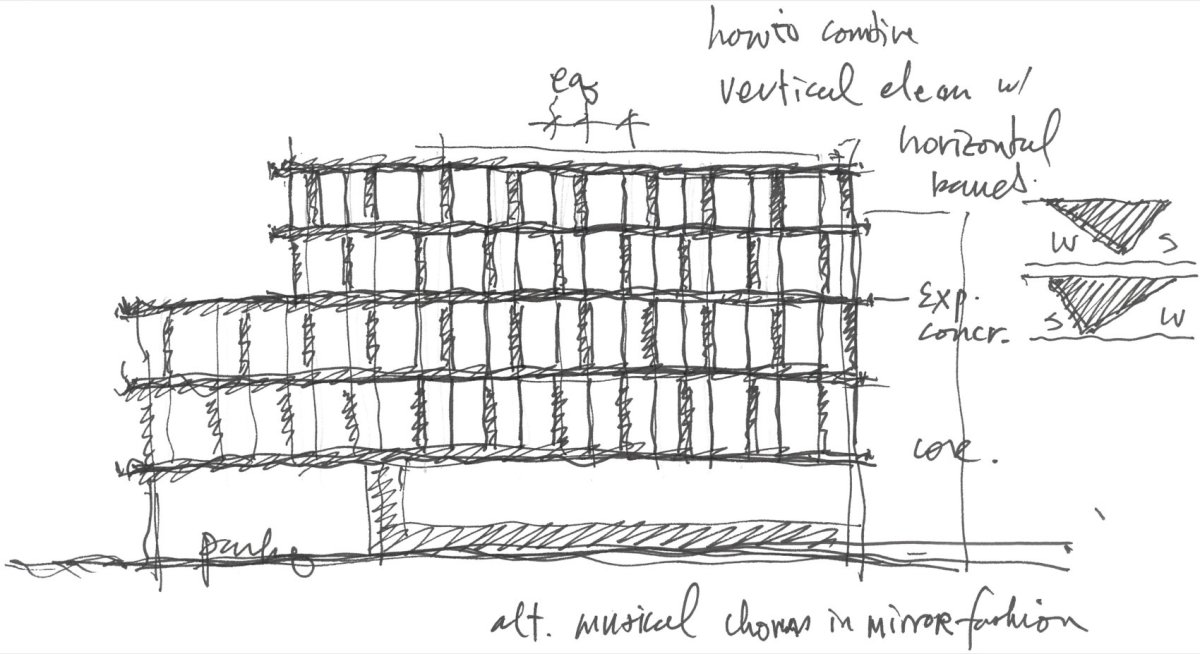 how to combine
vertical clean w/
horizontal
bands.
eq
W S
S W
Exp.
concr.
core.
park
alt. musical chords in mirror fashion